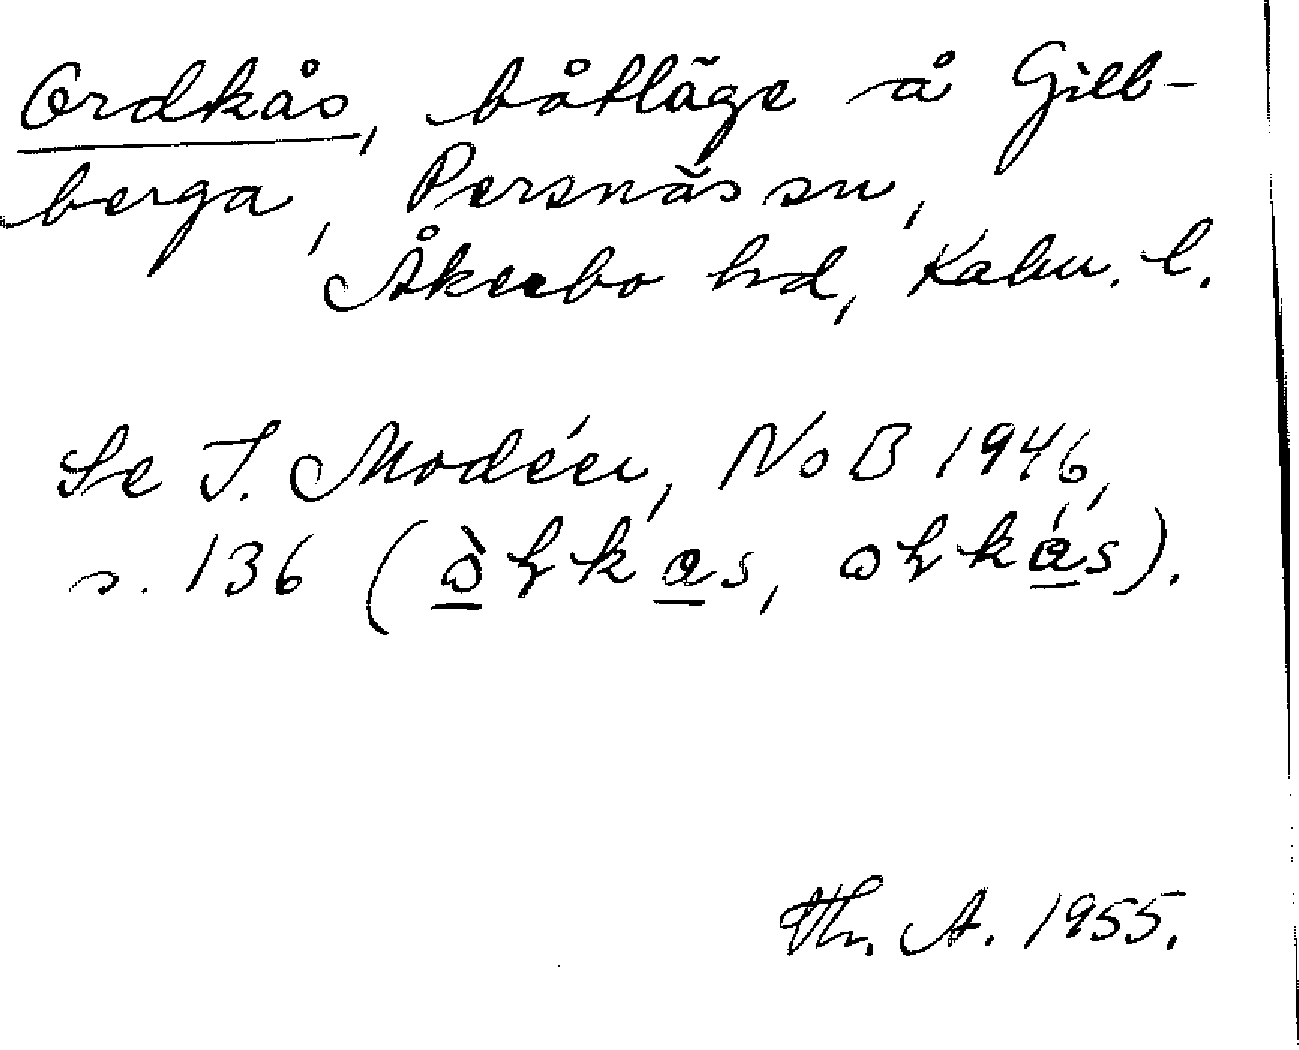 Ordkås, båtläge å Gill-
berga, Persnäs sn,
Åkerbo hd, Kalm. l.
Se I. Modéer, NoB 1946,
s. 136
Th. A. 1955.